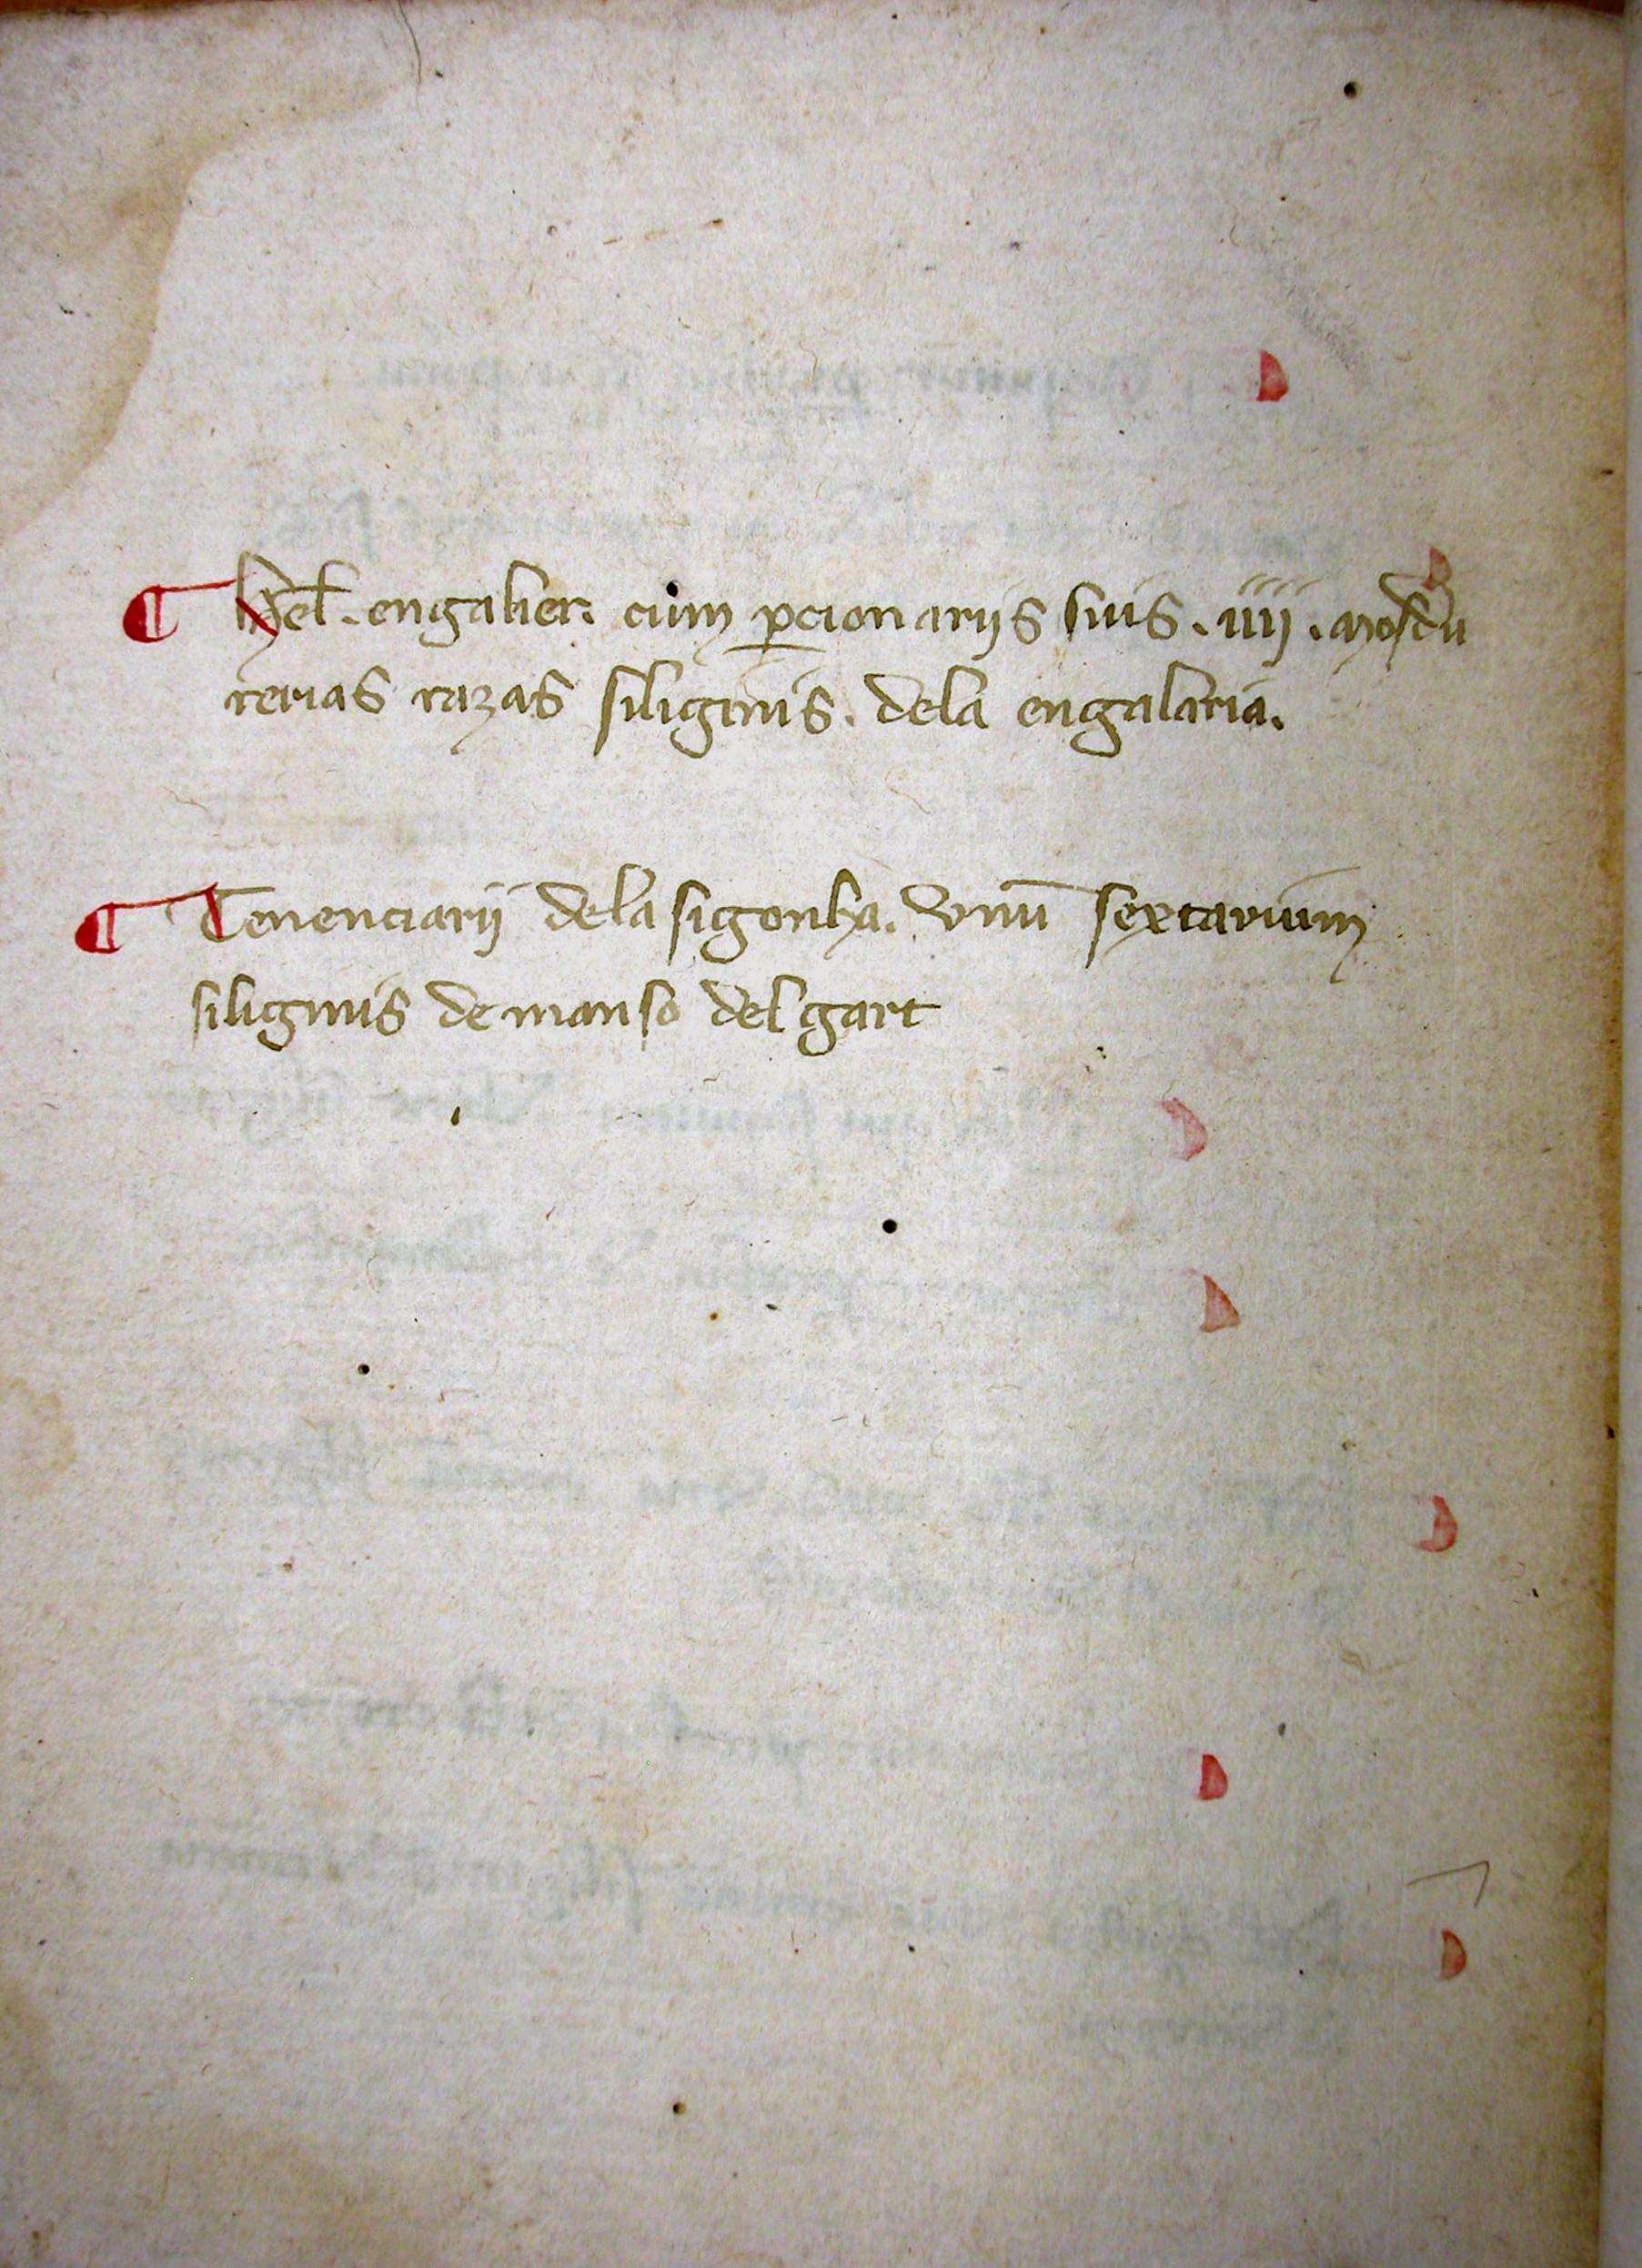 ¶ Hel̄. engalier. cum ꝑcionariis suis. iiii. mosdu
rerias razas siliginis. dela engalaria.
¶ Tenenciarii dela sigonha. Vnū sextarium
siliginis de manso del gart